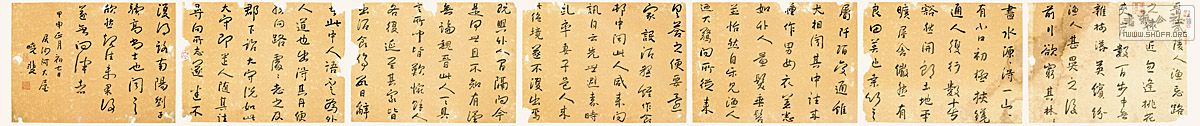 漁人忘路
近忽逢桃花
數百步中無
雜樹落英繽紛
漁人甚異之復
前行欲窮其林
盡水源得一山
有小口初極狹纔
通人復行數十步
豁然開朗土地平
曠屋舍儼然有
良田美池桑竹之
屬阡陌交通雞
犬相聞其中往來
種作男女衣著悉
如外人黃髮垂髫
並怡然自樂見漁人
乃大驚問所從來
具答之便要還
家設酒殺雞作食
村中聞此人咸來問
訊自云先世避秦時
亂率妻子邑人來
此絕境遂不復出焉
遂與外人間隔問今
是何世乃不知有漢
無論魏晉此人一一具
言所聞皆歎惋餘人
各復延至其家皆
出酒食停數日辭
去此中人語云
人道也既出得其舟便
扶向路處處志之及
郡下詣太守說如此
太守即遣人隨其往
尋向所志遂迷不
復得路南陽劉子
驥高尚士也聞之
欣然規往未果尋
遂無問津者
甲申正月初吉
WWW.SHUFA.ORG